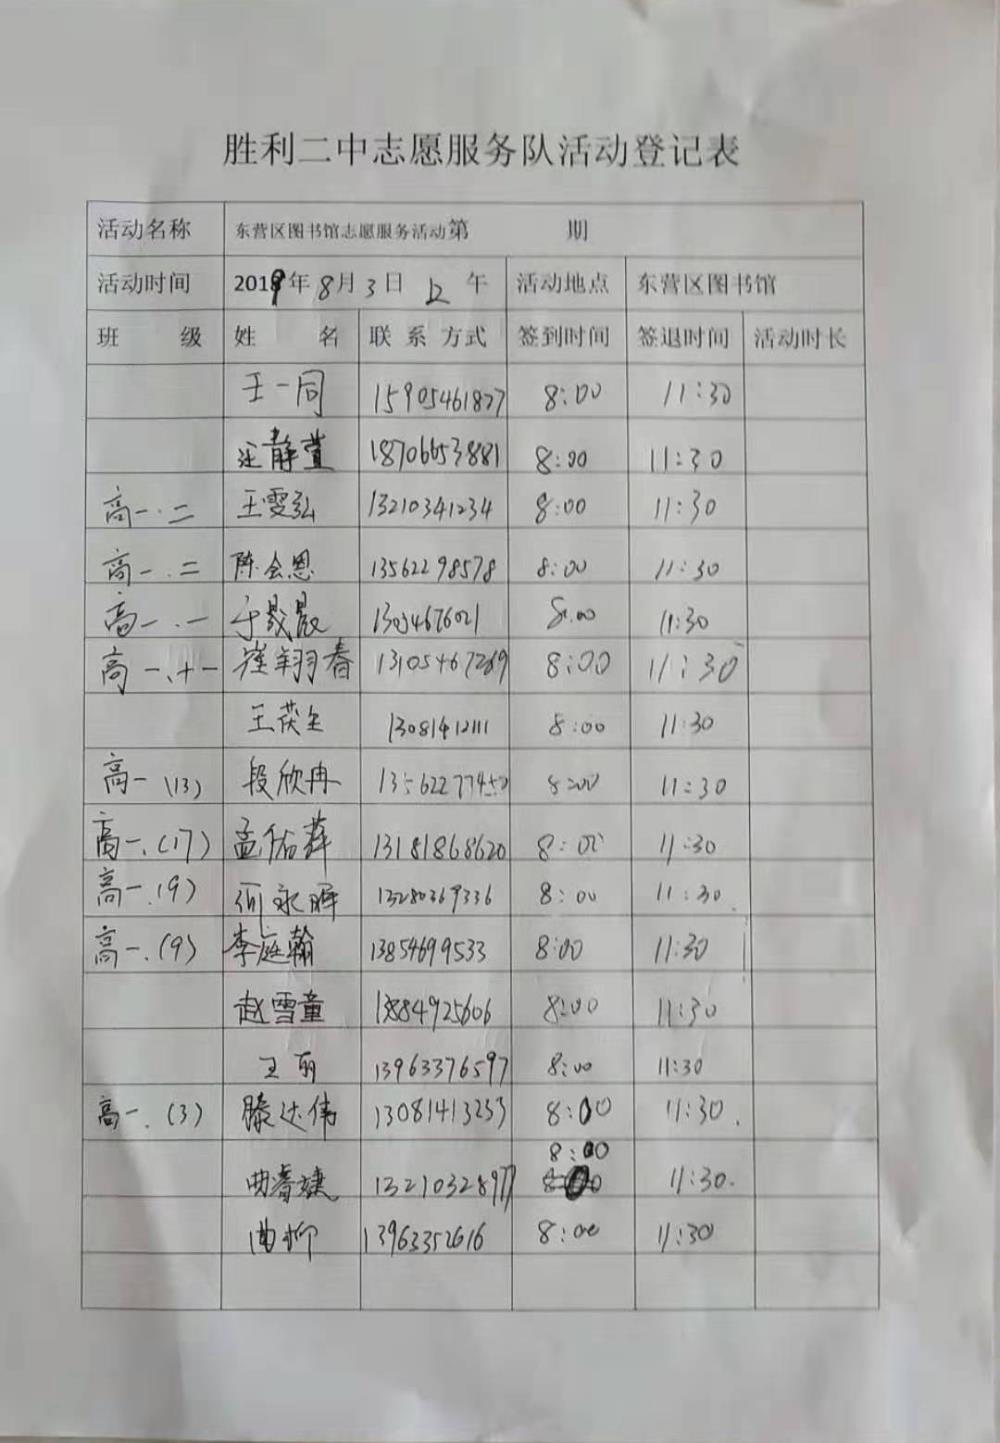 胜利二中志愿服务队活动登记表
活动名称 东营区图书馆志愿服务活动第 期
活动时间 2019年8月3日 上午 活动地点 东营区图书馆
班 级 姓 名 联系方式 签到时间 签退时间 活动时长
王一同 15905461877 8:00 11:30
汪静萱 18706653881 8:00 11:30
高一.二 王雯弘 13210341234 8:00 11:30
高一.二 陈会恩 13562298578 8:00 11:30
高一.一 于晟晸 8:00 11:30
高一.十一 崔翔春 13105467269 8:00 11:30
王茯生 13081412111 8:00 11:30
高一(13) 段欣冉 13562277450 8:00 11:30
高一.(17) 孟佑薛 13181868620 8:00 11:30
高一.(9) 何永晖 13280369336 8:00 11:30
高一.(9) 李庭翰 13854699533 8:00 11:30
赵雪童 18884925606 8:00 11:30
王丽 13963376597 8:00 11:30
高一.(3) 滕达伟 13081413253 8:00 11:30.
8:00
曲睿婕 13210328977 11:30.
曲柳 13963352616 8:00 11:30